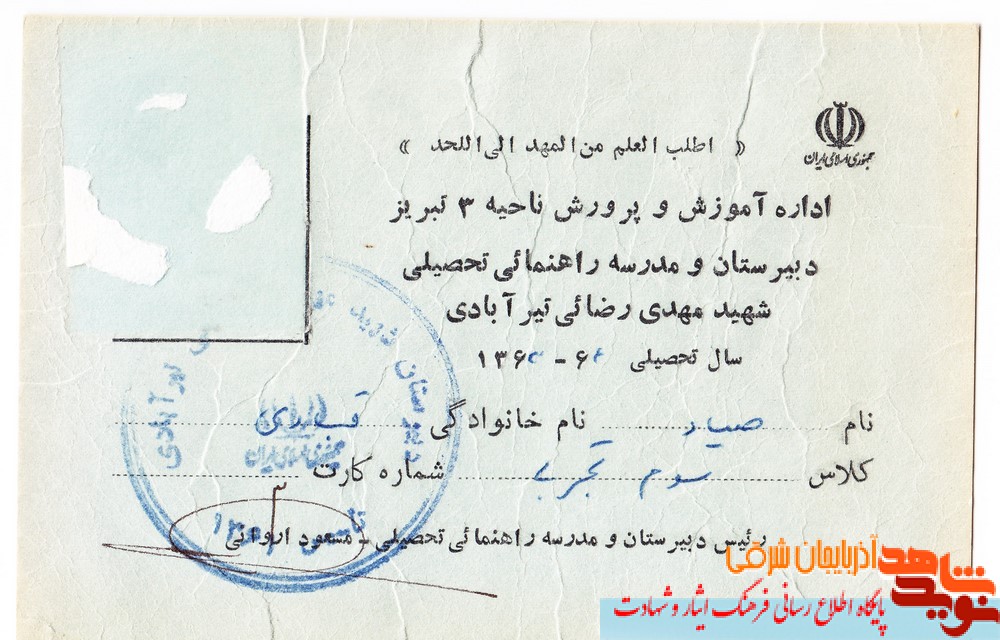 جمهوری اسلامی ایران
« اطلب العلم من المهد الی اللحد »
اداره آموزش و پرورش ناحیه ۳ تبریز
دبیرستان و مدرسه راهنمائی تحصیلی
شهید مهدی رضائی تیرآبادی
سال تحصیلی ۶۴ - ۱۳۶۳
نام صیاد نام خانوادگی
کلاس سوم تجربی شماره کارت
رئیس دبیرستان و مدرسه راهنمائی تحصیلی - مسعود اروانی
جمهوری اسلامی ایران
نوید شاهد آذربایجان شرقی
پایگاه اطلاع رسانی فرهنگ ایثار و شهادت